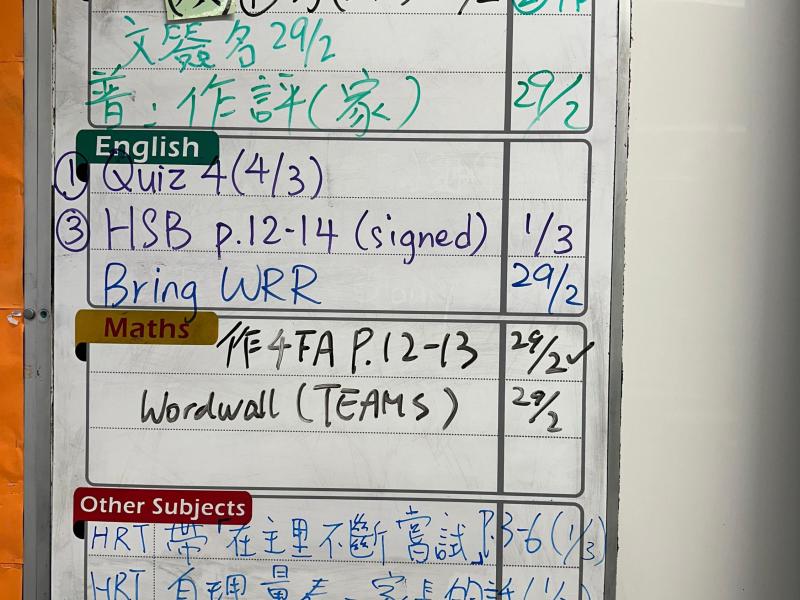 文簽名 29/2
普：作評(家) 29/2
English
① Quiz 4 (4/3)
③ HSB p.12-14 (signed) 1/3
Bring WRR 29/2
Maths
作4FA P.12-13 29/2✓
Wordwall (TEAMS) 29/2
Other Subjects
HRT 帶「在主里不斷嘗試」P.3-6 (1/3)
HRT